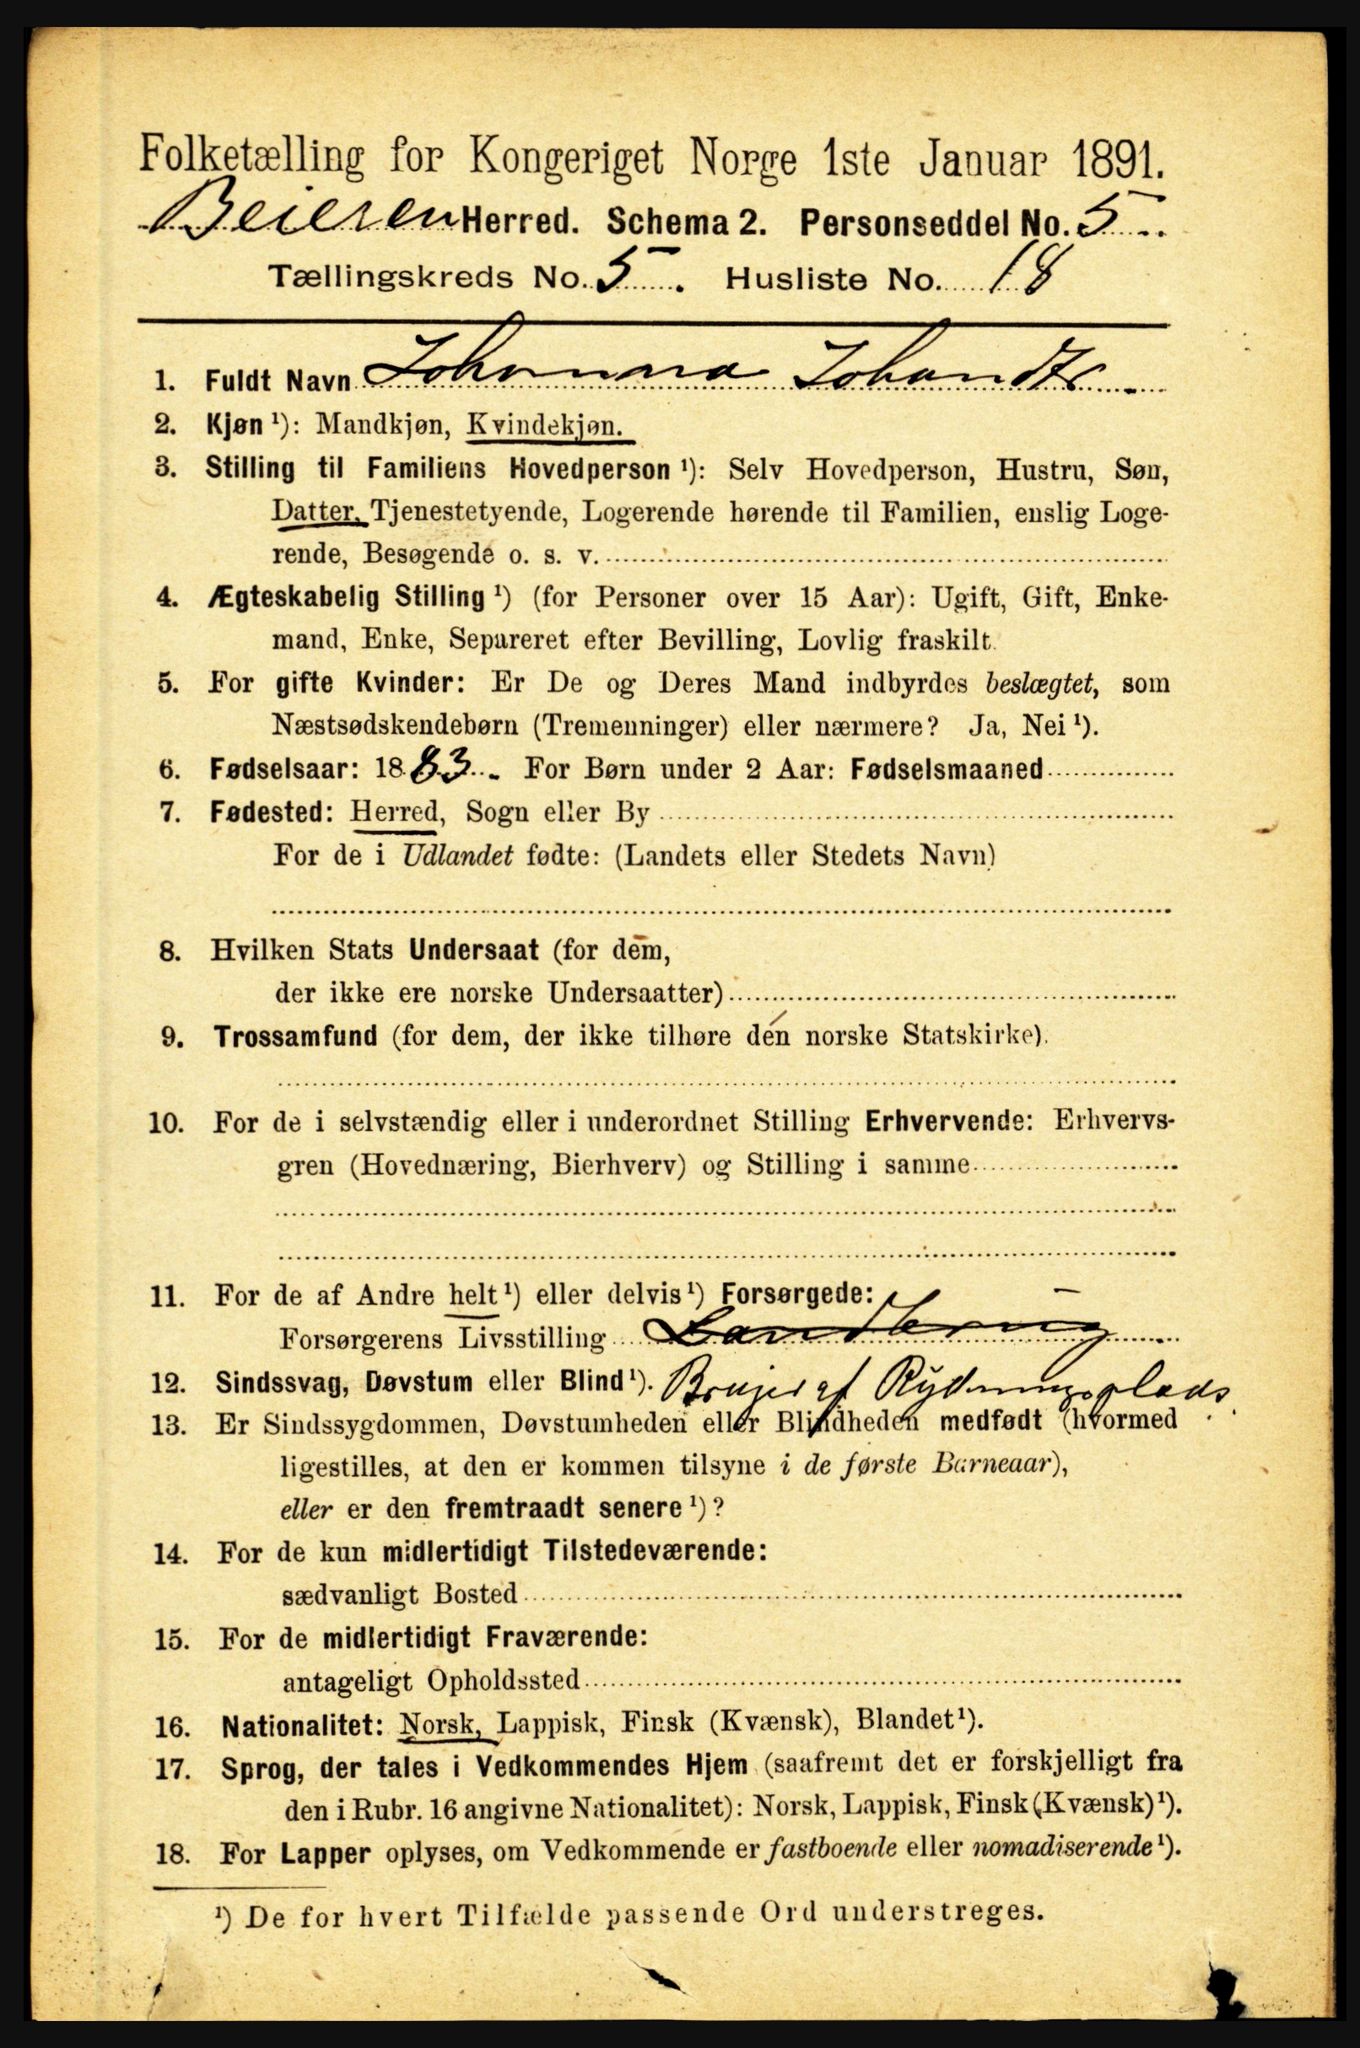 Folketælling for Kongeriget Norge 1ste Januar 1891.
Beieren Herred. Schema 2. Personseddel No. 5
Tællingskreds No. 5. Husliste No. 18
1. Fuldt Navn Johanna Johansdtr.
2. Kjøn ¹): Mandkjøn, Kvindekjøn.
3. Stilling til Familiens Hovedperson ¹): Selv Hovedperson, Hustru, Søn,
Datter, Tjenestetyende, Logerende hørende til Familien, enslig Loge-
rende, Besøgende o. s. v.
4. Ægteskabelig Stilling ¹) (for Personer over 15 Aar): Ugift, Gift, Enke-
mand, Enke, Separeret efter Bevilling, Lovlig fraskilt.
5. For gifte Kvinder: Er De og Deres Mand indbyrdes beslægtet, som
Næstsødskendebørn (Tremenninger) eller nærmere? Ja, Nei ¹).
6. Fødselsaar: 1883. For Børn under 2 Aar: Fødselsmaaned
7. Fødested: Herred, Sogn eller By
For de i Udlandet fødte: (Landets eller Stedets Navn)
8. Hvilken Stats Undersaat (for dem,
der ikke ere norske Undersaatter)
9. Trossamfund (for dem, der ikke tilhøre den norske Statskirke).
10. For de i selvstændig eller i underordnet Stilling Erhvervende: Erhvervs-
gren (Hovednæring, Bierhverv) og Stilling i samme
11. For de af Andre helt ¹) eller delvis ¹) Forsørgede:
Forsørgerens Livsstilling
12. Sindssvag, Døvstum eller Blind ¹). Bruger af Rydningsplads
13. Er Sindssygdommen, Døvstumheden eller Blindheden medfødt (hvormed
ligestilles, at den er kommen tilsyne i de første Barneaar),
eller er den fremtraadt senere ¹)?
14. For de kun midlertidigt Tilstedeværende:
sædvanligt Bosted
15. For de midlertidigt Fraværende:
antageligt Opholdssted
16. Nationalitet: Norsk, Lappisk, Finsk (Kvænsk), Blandet ¹).
17. Sprog, der tales i Vedkommendes Hjem (saafremt det er forskjelligt fra
den i Rubr. 16 angivne Nationalitet): Norsk, Lappisk, Finsk (Kvænsk) ¹).
18. For Lapper oplyses, om Vedkommende er fastboende eller nomadiserende ¹).
¹) De for hvert Tilfælde passende Ord understreges.